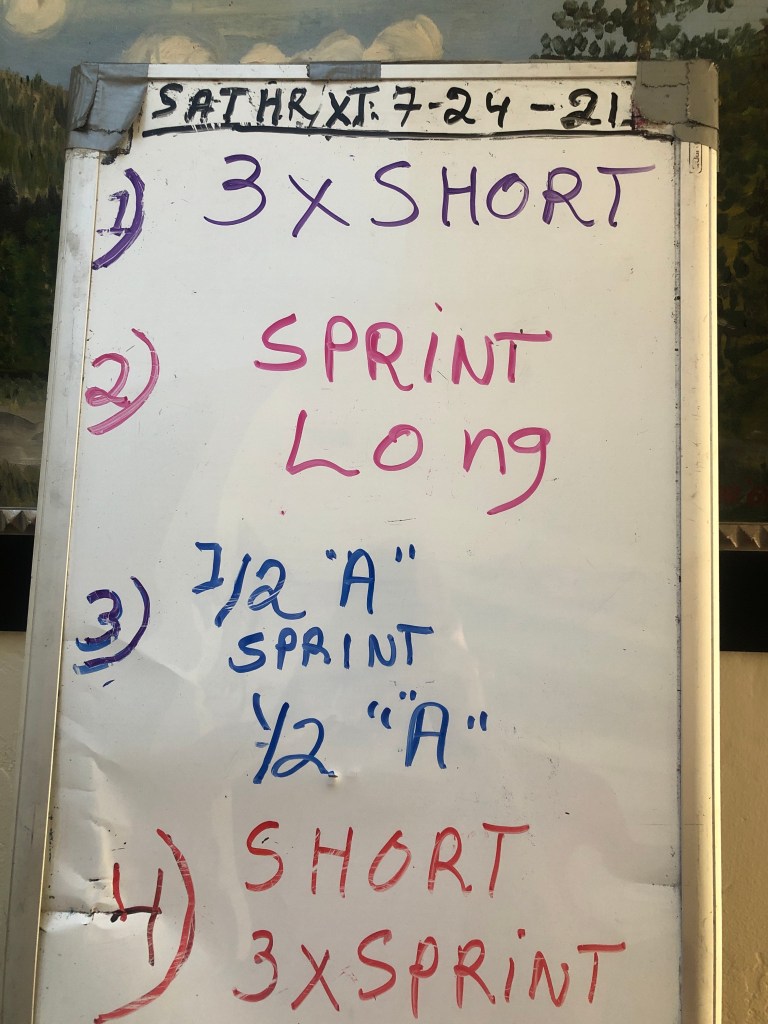 SAT HR, XT: 7-24-21
1) 3 X SHORT
2) SPRINT
LONg
3) 1/2 "A"
SPRINT
1/2 "A"
4) SHORT
3 X SPRINT